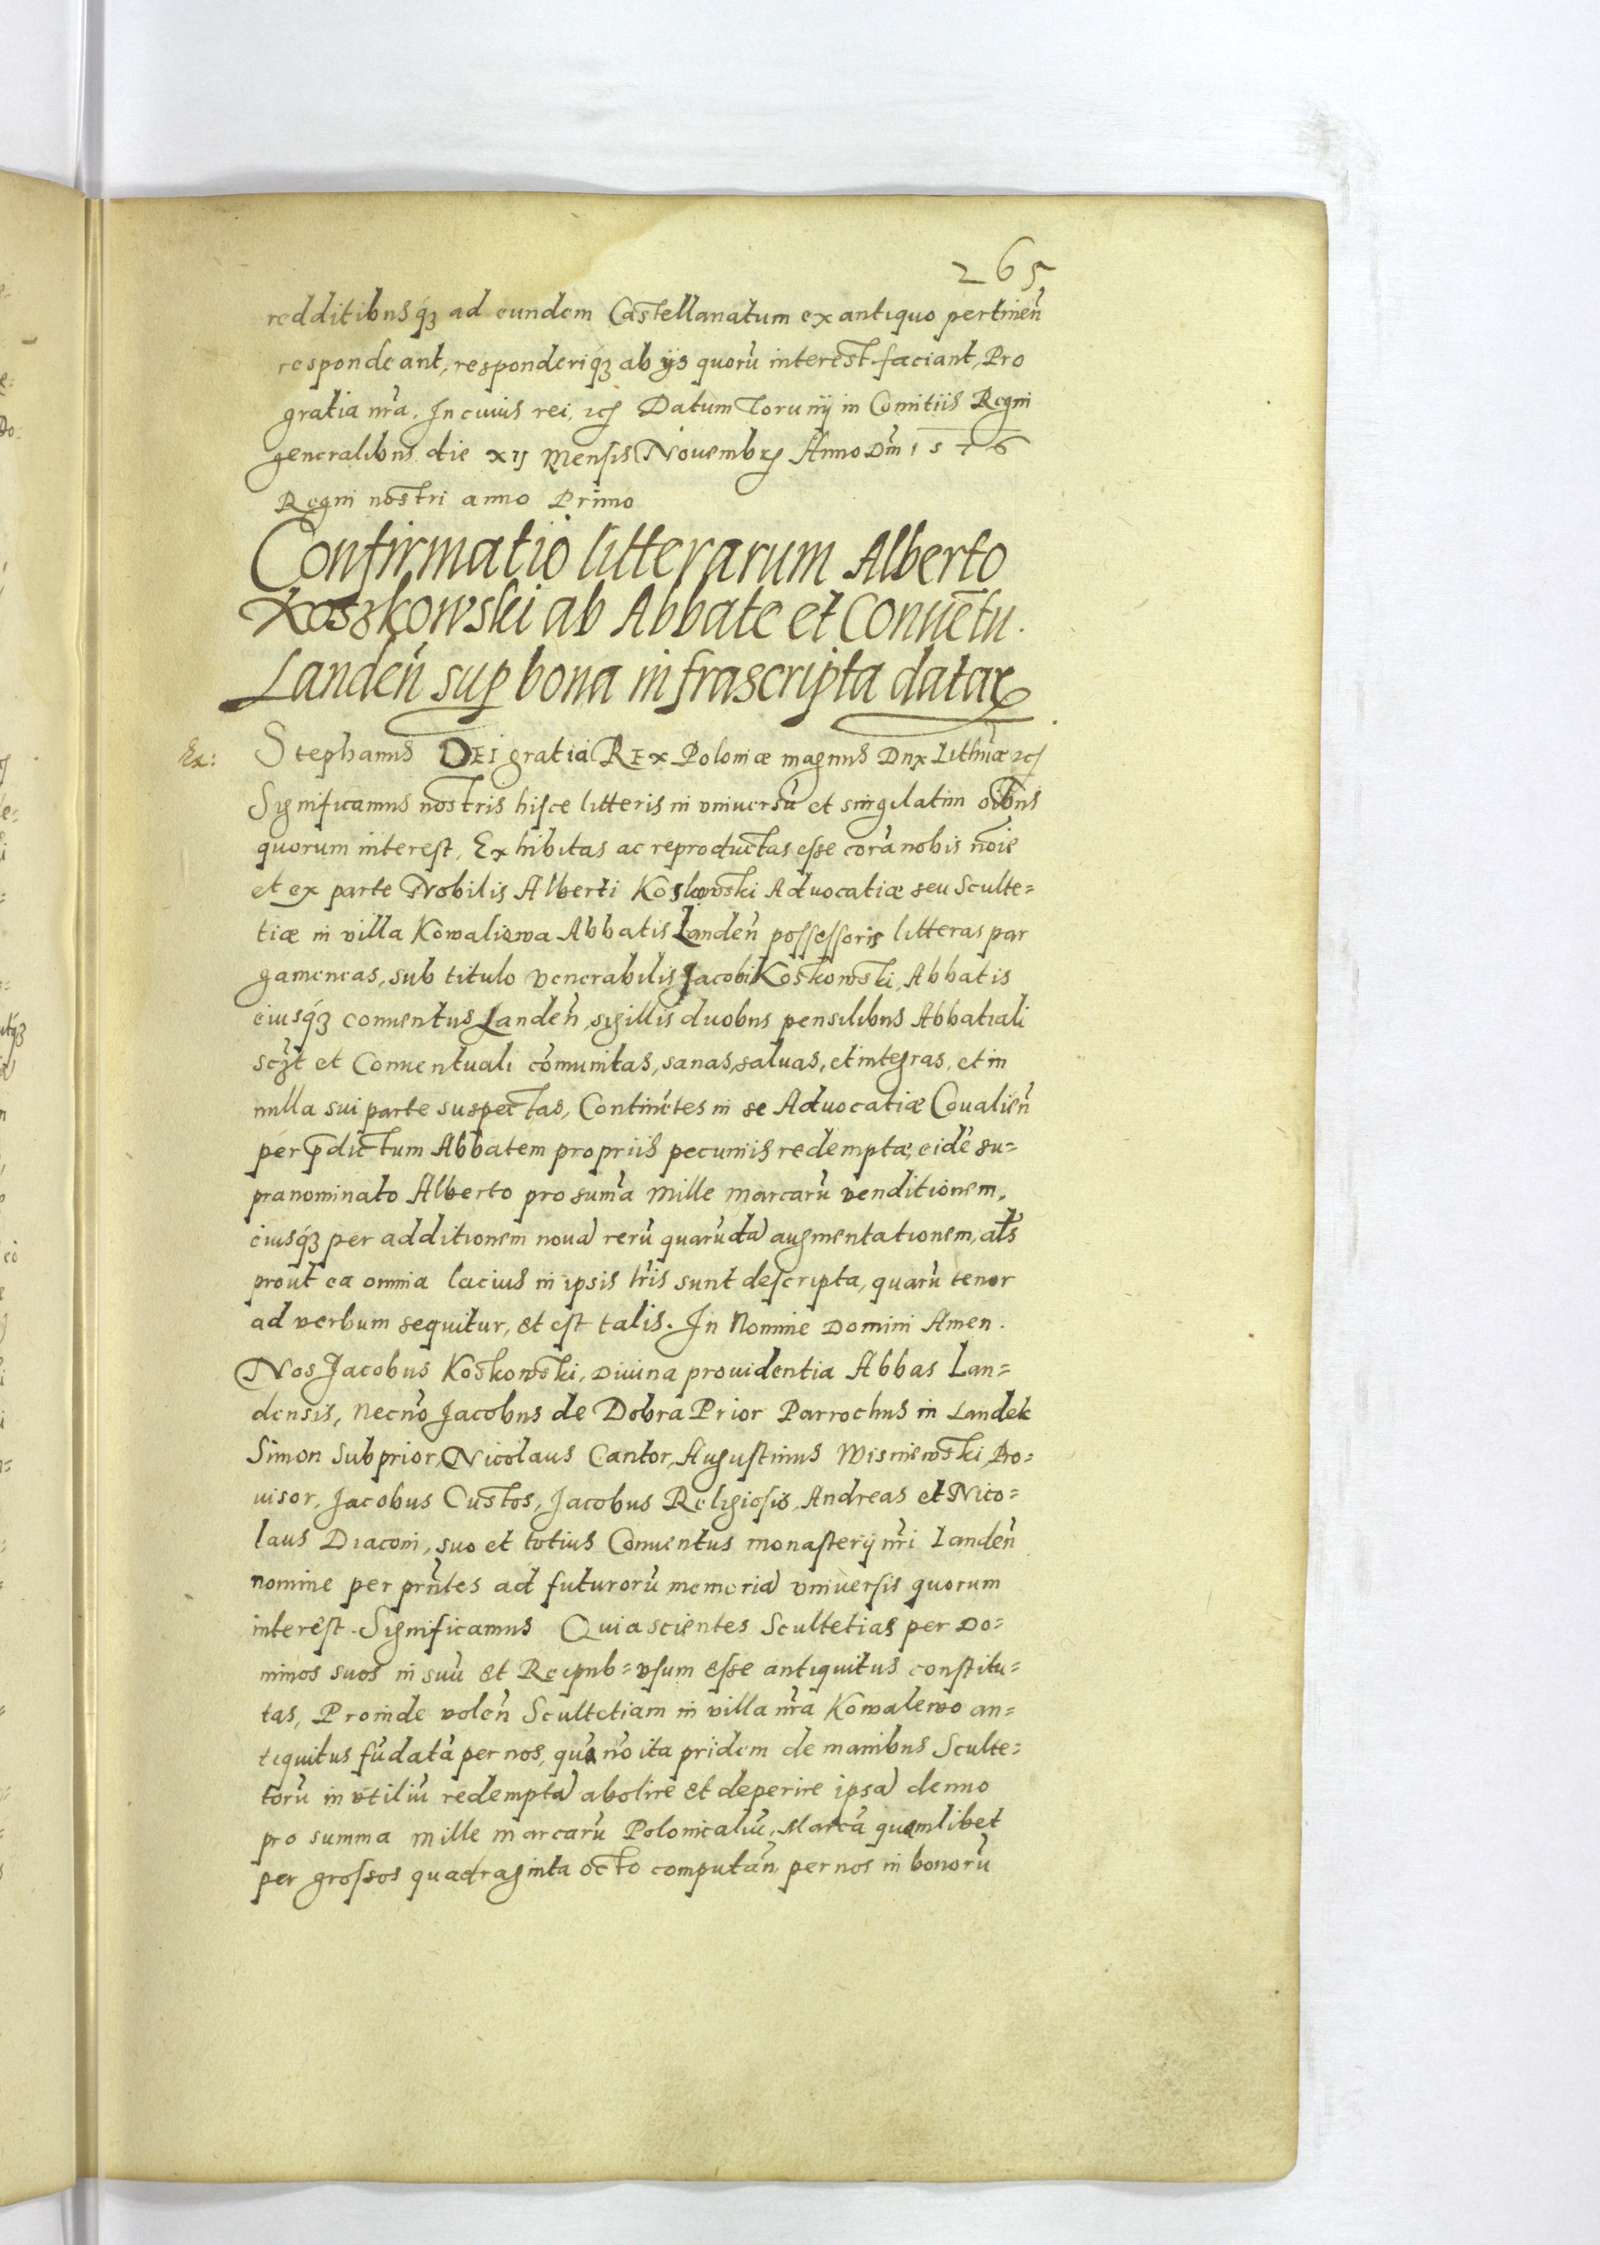 265
redditibusq́ꝫ ad eundem Castellanatum ex antiquo pertineñ
respondeant, responderiq́ꝫ ab ijs quorũ interest faciant, Pro
gratia nr̃a. In cuius rei, ꝛcꝭ Datum Torunij in Comitiis Regni
generalibus die xij Mensis Nouembrꝭ Anno Dñi 1576
Regni nostri anno Primo
Confirmatio litterarum Alberto
Koszkowski ab Abbate et Conuẽtu
Landeñ sup bona infrascripta datarꝝ
Ex: Stephanus DEI gratia REx Poloniæ magnus Dux Lithũæ ꝛcꝭ
Significamus nostris hisce litteris in vniuersũ et singulatim oĩbus
quorum interest, Exhibitas ac reproductas esse corã nobis nõie
et ex parte Nobilis Alberti Koskowski Aduocatiæ seu Sculte=
tiæ in villa Kowaliewa Abbatis Landeñ possessoris litteras par
gameneas, sub titulo venerabilis Jacobi Koskowski, Abbatis
eiusq́ꝫ conuentus Landeñ, sigillis duobus pensilibus Abbatiali
sczt̃ et Conuentuali cõmunitas, sanas, saluas, et integras, et in
nulla sui parte suspectas, Continẽtes in se Aduocatiæ Coualieñ
per p̃dictum Abbatem propriis pecuniis redemptæ, eidẽ su=
pranominato Alberto pro sum̃a Mille marcarũ venditionem,
eiusq́ꝫ per additionem nouã rerũ quarũdã augmentationem, al̃s
prout ea omnia lacius in ipsis lr̃is sunt descripta, quarũ tenor
ad verbum sequitur, et est talis. In Nomine Domini Amen.
Nos Jacobus Koskowski, Diuina prouidentia Abbas Lan=
densis, Necnõ Jacobus de Dobra Prior Parrochus in Landek
Simon Subprior, Nicolaus Cantor, Augustinus Wisniewski Pro=
uisor, Jacobus Custos, Jacobus Religiosis, Andreas et Nico=
laus Diaconi, suo et totius Conuentus monasterij nr̃i Landeñ
nomine per prñtes ad futurorũ memoriã vniuersis quorum
interest Significamus Quia scientes Scultetias per Do=
minos suos in suũ et Reipub= vsum esse antiquitus constitu=
tas, Proinde voleñ Scultetiam in villa nr̃a Kowalewo an=
tiquitus fũdatã per nos, quã nõ ita pridem de manibus Sculte=
torũ in vtiliũ redemptã abolire et deperire ipsã denuo
pro summa mille marcarũ Polonicaliũ, Marcã quamlibet
per grossos quadraginta octo computañ per nos in bonorũ